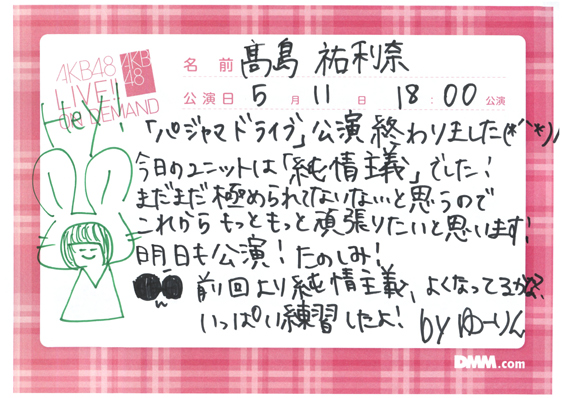 AKB48
LIVE!!
ON DEMAND
AKB
48
名 前 髙島 祐利奈
公演日 5 月 11 日 18:00 公演
Hey!
「パジャマドライブ」公演 終わりました(*´`*)ﾉ
今日のユニットは「純情主義」でした!
まだまだ極められてないないと思うので
これからもっともっと頑張りたいと思います!
明日も公演!たのしみ!
前回より純情主義、よくなってるかな?
いっぱい練習したよ! by ゆーりん
DMM.com